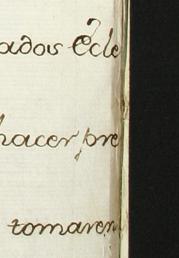 ados Ecle
hacer pre
tomaren